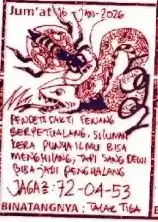 Jum'at, 16 Jan-2026
PENDETA SAKTI TENANG
BERPETUALANG, SILUMAN
KERA PUNYA ILMU BISA
MENGHILANG, TAPI SANG DEWI
BISA JADI PENGHALANG
JAGA2: 72-04-53
BINATANGNYA: TIDAK TIBA